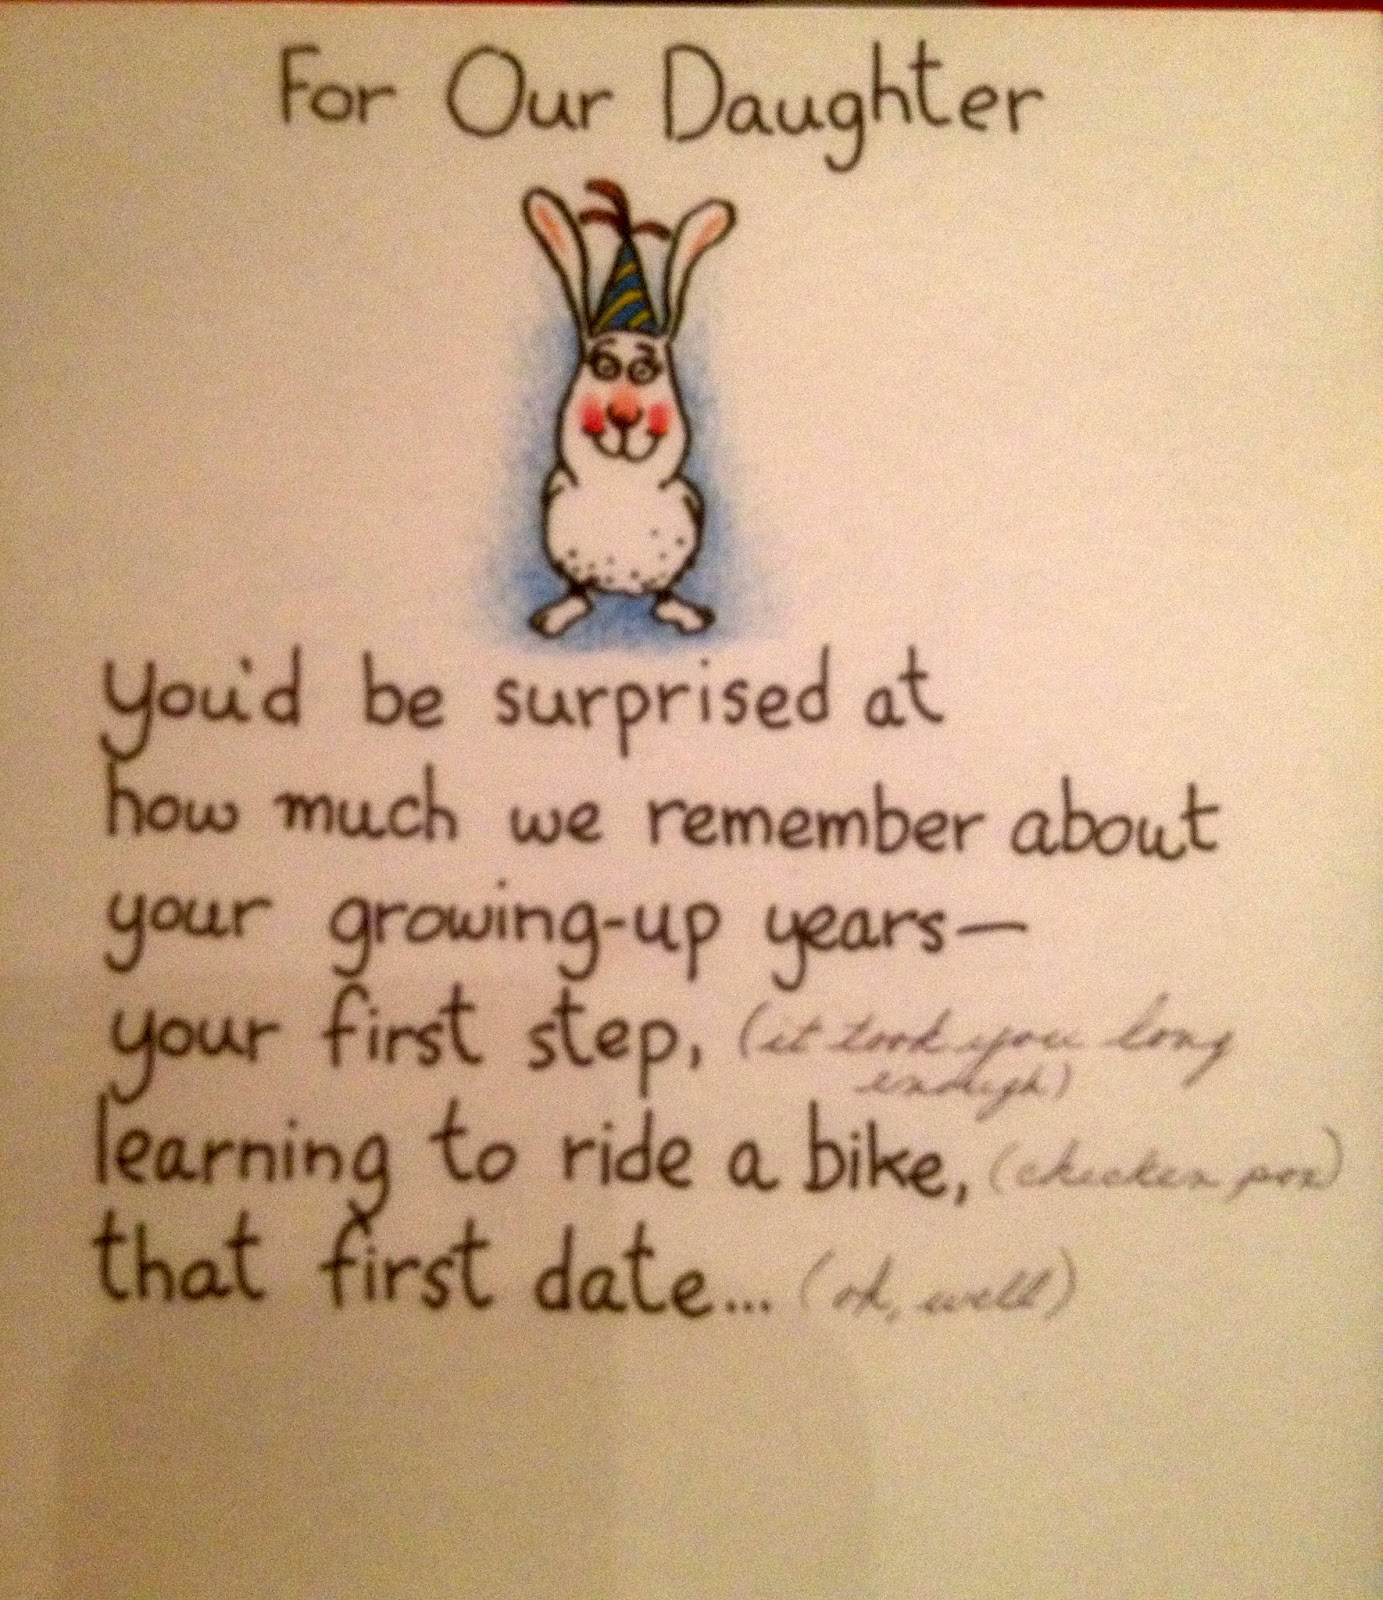 For Our Daughter
You'd be surprised at
how much we remember about
your growing-up years—
your first step, (it took you long
enough)
learning to ride a bike, (chicken pox)
that first date... (oh, well)